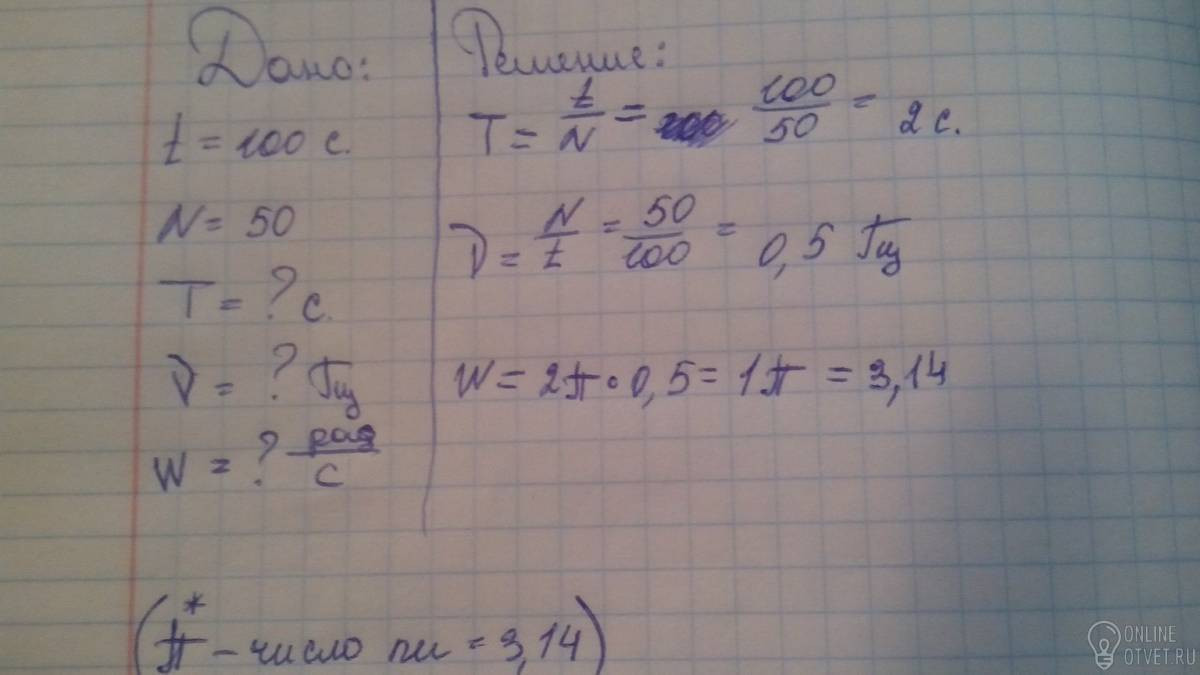 Дано:
t = 100 с.
N = 50
T = ? с.
ν = ? Гц
W = ? рад/с
Решение:
T = t/N = 100/50 = 2 с.
ν = N/t = 50/100 = 0,5 Гц
W = 2π • 0,5 = 1π = 3,14
(π* - число пи = 3,14)
ONLINE
OTVET.RU